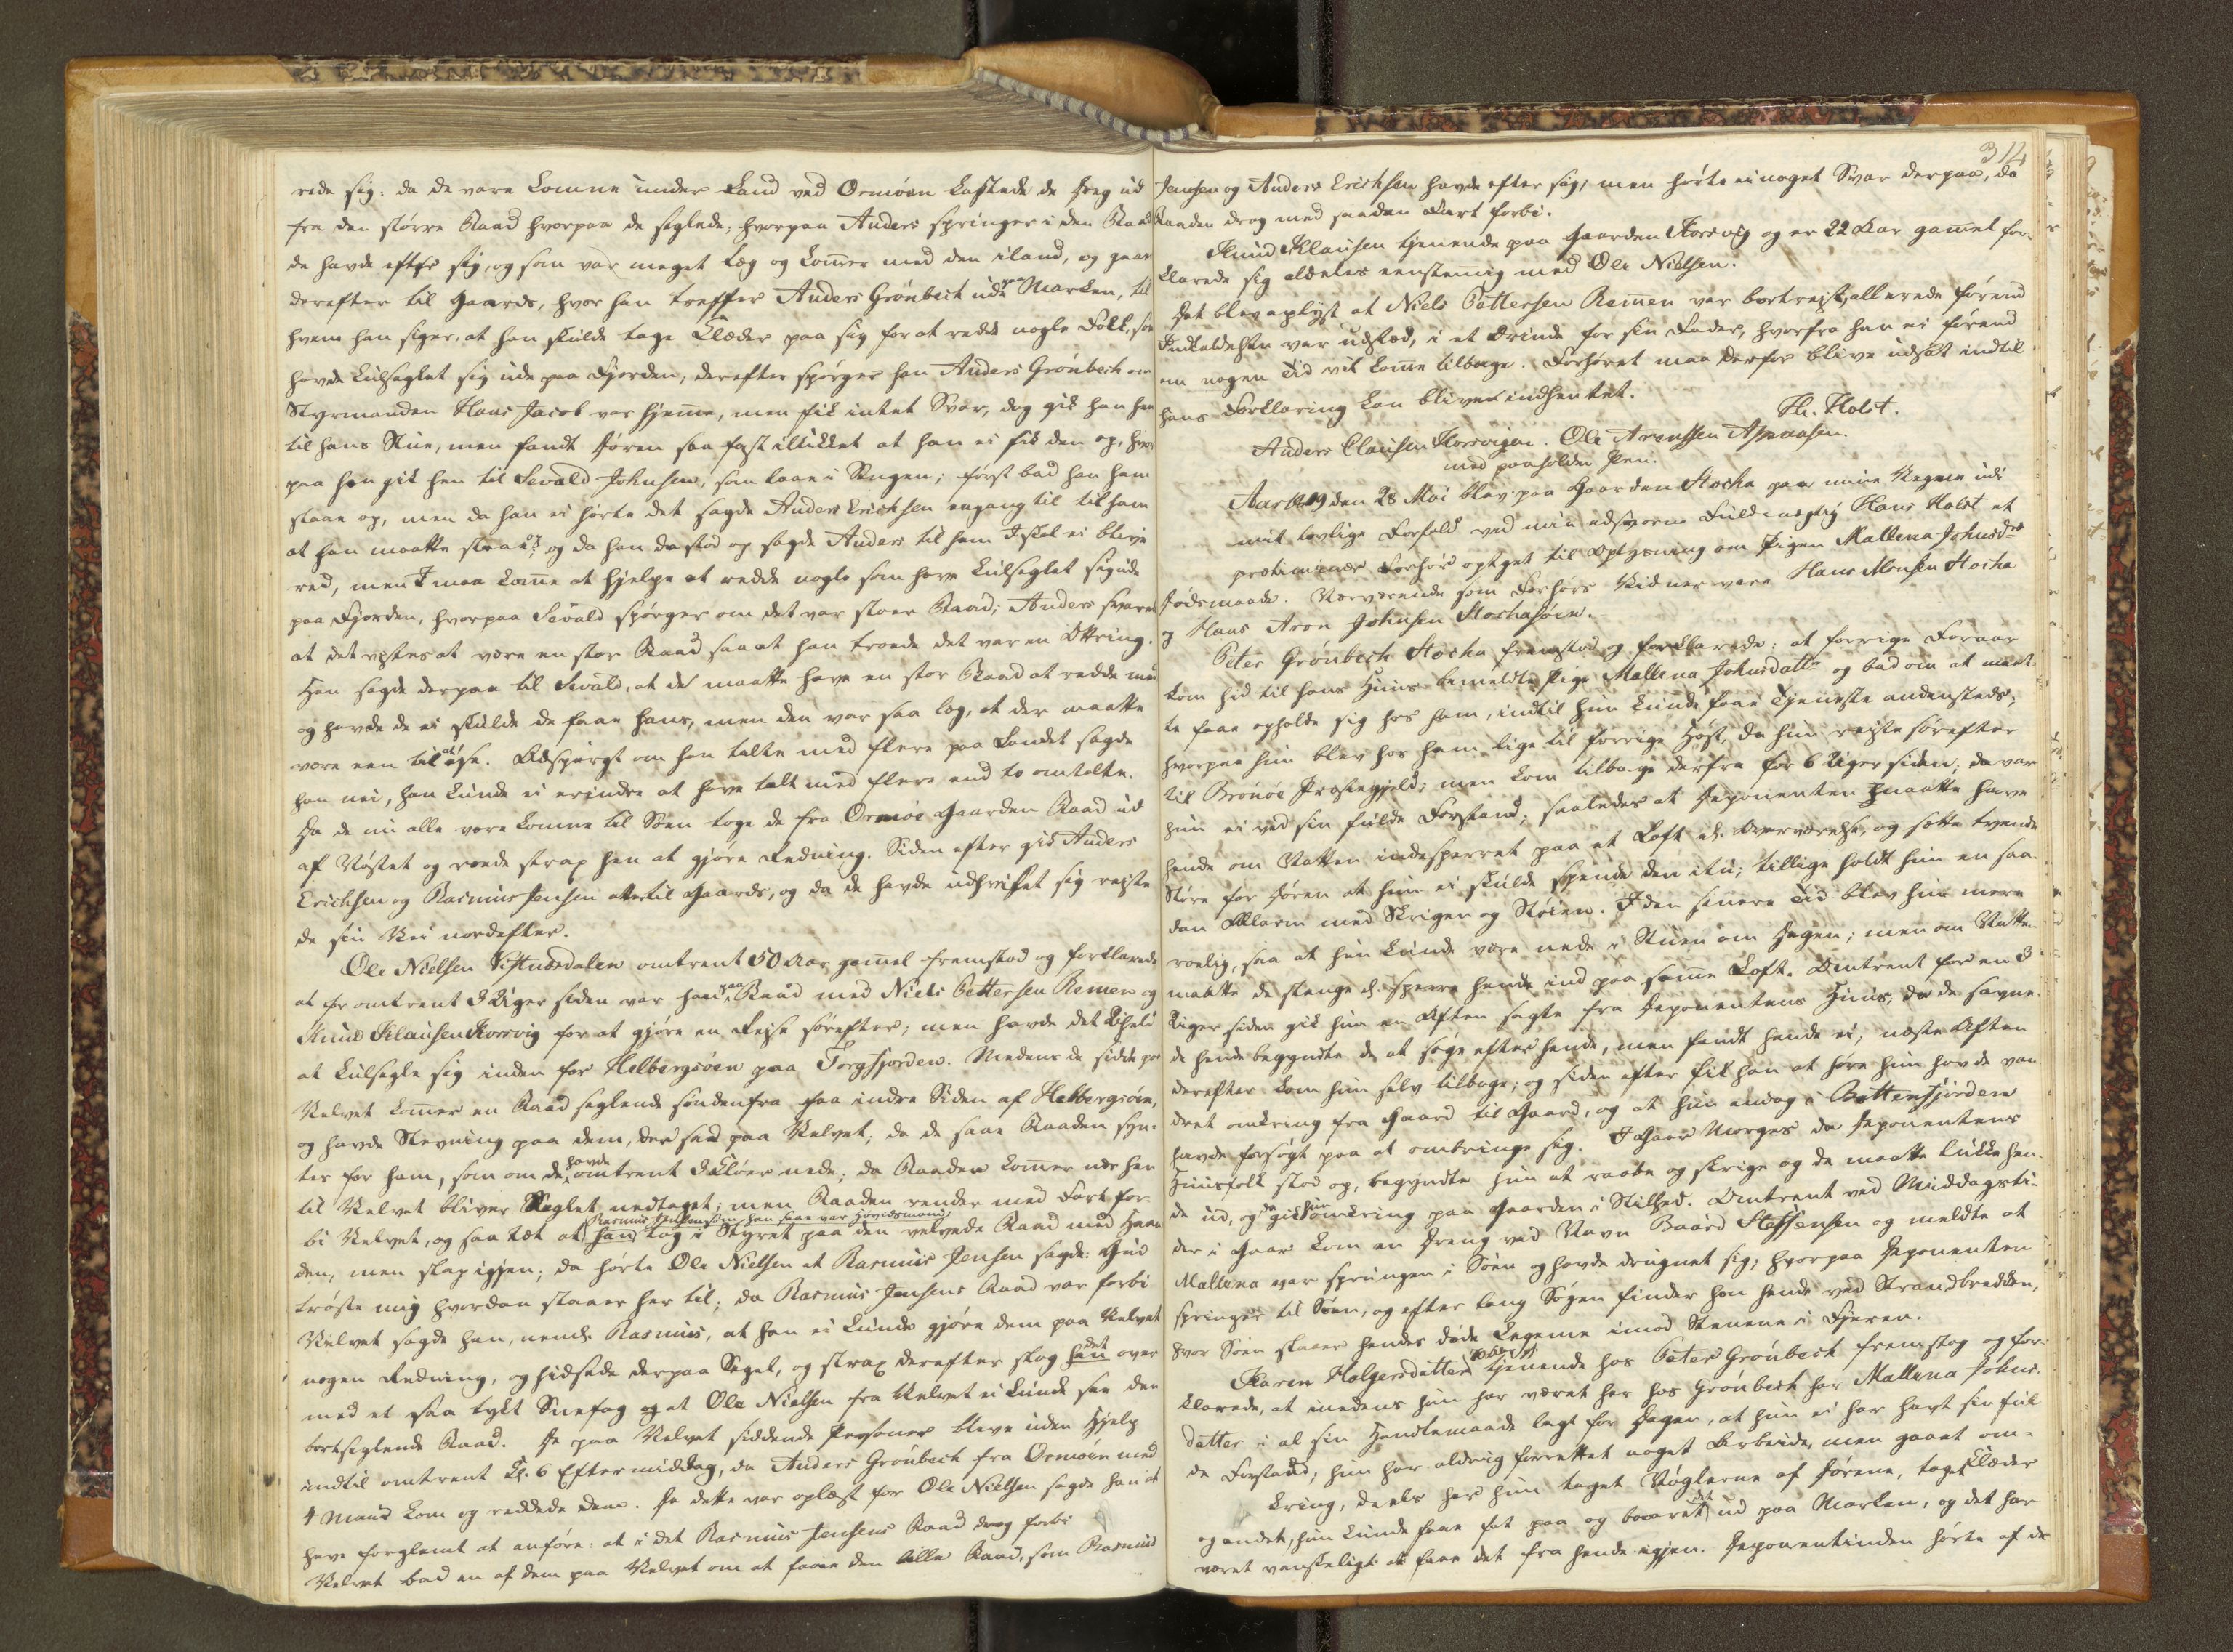 rede sig: da de vare komne under Land ved Ormøen kastede de Dreg ud
fra den større Baad hvorpaa de seglede, hvorpaa Anders springer i den Baad
de havde efter sig, og som var meget læg og komer med den iland, og gaar
derefter til Gaards, hvor han treffer Anders Grønbech ude paa Marken, til
hvem han siger, at han skulde tage Klæder paa sig for at redde nogle Folk, som
havde kulseglet sig ude paa Fjorden, derefter spørger han Anders Grønbech om
Styrmanden Hans Jacob var hjemme, men fik intet Svar, dog gik han hen
til hans Stue, men fandt Døren saa fast tillukket at han ei fik den op, hvor-
paa han gik hen til Sevald Johnsen, som laae i Sengen; først bad han ham
staae op, men da han ei hørte det sagde Anders Erichsen engang til til ham
at han maatte staa op og da han da stod op sagde Anders til ham I skal ei blive
red, men I maa komme at hjelpe at redde nogle som have kulseglet sig ude
paa Fjorden, hvorpaa Sevald spørger om det var stoer Baad; Anders svarer
at det vistes at være en stor Baad saa at han troede det var en Ottring.
Han sagde derpaa til Sevald, at de maatte have en stor Baad at redde med
og havde de ei skulde de faae hans, men den var saa læg, at der maatte
være een til at øse. Adspurgt om han talte med flere paa Landet sagde
han nei, han kunde ei erindre at have talt med flere end to omtalte.
Da de nu alle vare komne til Søen toge de fra Ormøe Gaarden Baad ud
af Nøstet og roede strax hen at gjøre Redning. Siden efter gik Anders
Erichsen og Rasmus Jensen atter til Gaards, og da de havde udhvilet sig rejste
de sin Vei nordefter.
Ole Nielsen Vistnesdalen omtrent 50 Aar gamel fremstod og forklarede
at for omtrent 3 Uger siden var han paa Baad med Niels Pettersen Remen og
Knud Klausen Korsvig for at gjøre en Rejse sørefter; men havde det Uheld
at kulsegle sig inden for Helbergsøen paa Torgfjorden. Medens de sidde paa
Velvet komer en Baad seglende søndenfra paa indre Siden af Helbergsøen,
og havde Stevning paa dem, der sad paa Velvet; da de saae Baaden syn-
tes for ham, som om de havde omtrent 3 Kløer nede; da Baaden komer nær hen
til Velvet bliver Seglet nedtaget; men Baaden render med Fart for-
bi Velvet, og saa tæt at Rasmus Jensen som han saae var Høvidsmand han tog i Styret paa den velvede Baad med Haan-
den, men slap igjen; da hørte Ole Nielsen at Rasmus Jensen sagde: Gud
trøste mig hvordan staaer her til; da Rasmus Jensens Baad var forbi
Velvet sagde han, nemlig Rasmus, at han ei kunde gjøre dem paa Velvet
nogen Redning, og hidsede derpaa Segel, og strax derefter slog han det over
med et saa tykt Snefog og at Ole Nielsen fra Velvet ei kunde see den
bortseglende Baad. De paa Velvet siddende Personer bleve uden Hjelp
indtil omtrent Kl. 6 Eftermiddag, da Anders Grønbech fra Ormøen med
4 Mand kom og reddede dem. Da dette var oplæst for Ole Nielsen sagde han at
have forglemt at anføre: at i det Rasmus Jensens Baad drog forbi
Velvet bad en af dem paa Velvet om at faae den lille Baad, som Rasmus
314
Jensen og Anders Erichsen havde efter sig; men hørte ei noget Svar derpaa, da
Baaden drog med saadan Fart forbi.
Knud Klausen tjenende paa Gaarden Korsvig og er 22 Aar gamel for-
klarede sig aldeles eenstemig med Ole Nielsen.
Det blev oplyst at Niels Pettersen Remen var bortrejst, allerede førend
Indkaldelsen var udsted, i et Ærinde for sin Fader, hvorfra han ei førend
om nogen Tid vil komme tilbage. Forhøret maa derfor blive udsat indtil
hans Forklaring kan blive indhentet.
H. Holst.
Anders Clausen Korsvigen. Ole Arentsen
med paaholden Pen.
Aar 1849 den 28 Mai blev paa Gaarden Hocha paa mine Vegne udi
mit lovlige Forfald ved min edsvorne Fuldmægtig Hans Holst et
preliminær Forhør optaget til Oplysning om Pigen Mallena Johnsdtr
Dødsmaade. Nærværende som Forhørs Vidner vare Hans Monsen Hocha
og Hans Aron Johnsen Hochasøen.
Peter Grønbech Hocha fremstod og forklarede: at forrige Foraar
kom hid til hans Huus bemeldte Pige Mallena Johnsdatter og bad om at maat-
te faae opholde sig hos ham, indtil hun kunde faae Tjeneste andensteds;
hvorpaa hun blev hos ham lige til forrige Høst, da hun rejste sørefter
til Brønøe Prestegjeld; men kom tilbage derfra for 6 Uger siden; da var
hun ei ved sin fulde Forstand; saaledes at Deponenten maatte have
hende om Natten indesperret paa et Loft og sætte tvende
Støre for Døren at hun ei skulde spende den itu; tillige holdt hun en saa-
dan Allarm med Skrigen og Støien. I den senere Tid blev hun mere
roelig, saa at hun kunde være nede i Stuen om Dagen; men om Natten
maatte de stenge og sperre hende ind paa samme Loft. Omtrent for en 3
Uger siden gik hun en Aften sagte fra Deponentens Huus; da de savne-
de hende begyndte de at søge efter hende, men fandt hende ei; næste Aften
derefter kom hun selv tilbage; og siden efter fik han at høre hun havde van-
dret omkring fra Gaard til Gaard, og at hun endog i Bottenfjorden
havde forsøgt paa at ombringe sig. I Gaar Morges da Deponentens
Huusfolk stod op, begyndte hun at raabe og skrige og de maatte lukke hen-
de ud, og da gik hun omkring paa Gaarden i Stilhed. Omtrent ved Middagsti-
der i Gaar kom en Dreng ved Navn Baard Steffensen og meldte at
Mallena var sprungen i Søen og havde druknet sig; hvorpaa Deponenten
springer til Søen, og efter lang Søgen finder han hende ved Strandbredden,
hvor Søen slaaer hendes døde Legeme imod Stenene i Fjæren.
Karen Holgersdatter tjenende hos Peter Grønbech fremstod og for-
klarede, at imedens hun har været her hos Grønbech har Mallena Johns-
datter i al sin Handlemaade lagt for Dagen, at hun ei har havt sin ful-
de Forstand; hun har aldrig forrettet noget Arbeide, men gaaet om-
kring, deels har hun taget Nøglerne af Dørene, taget Klæder
og andet, hun kunde faae fat paa og baaret det ud paa Marken, og det har
været vanskeligt at faae det fra hende igjen. Deponentinden hørte af de